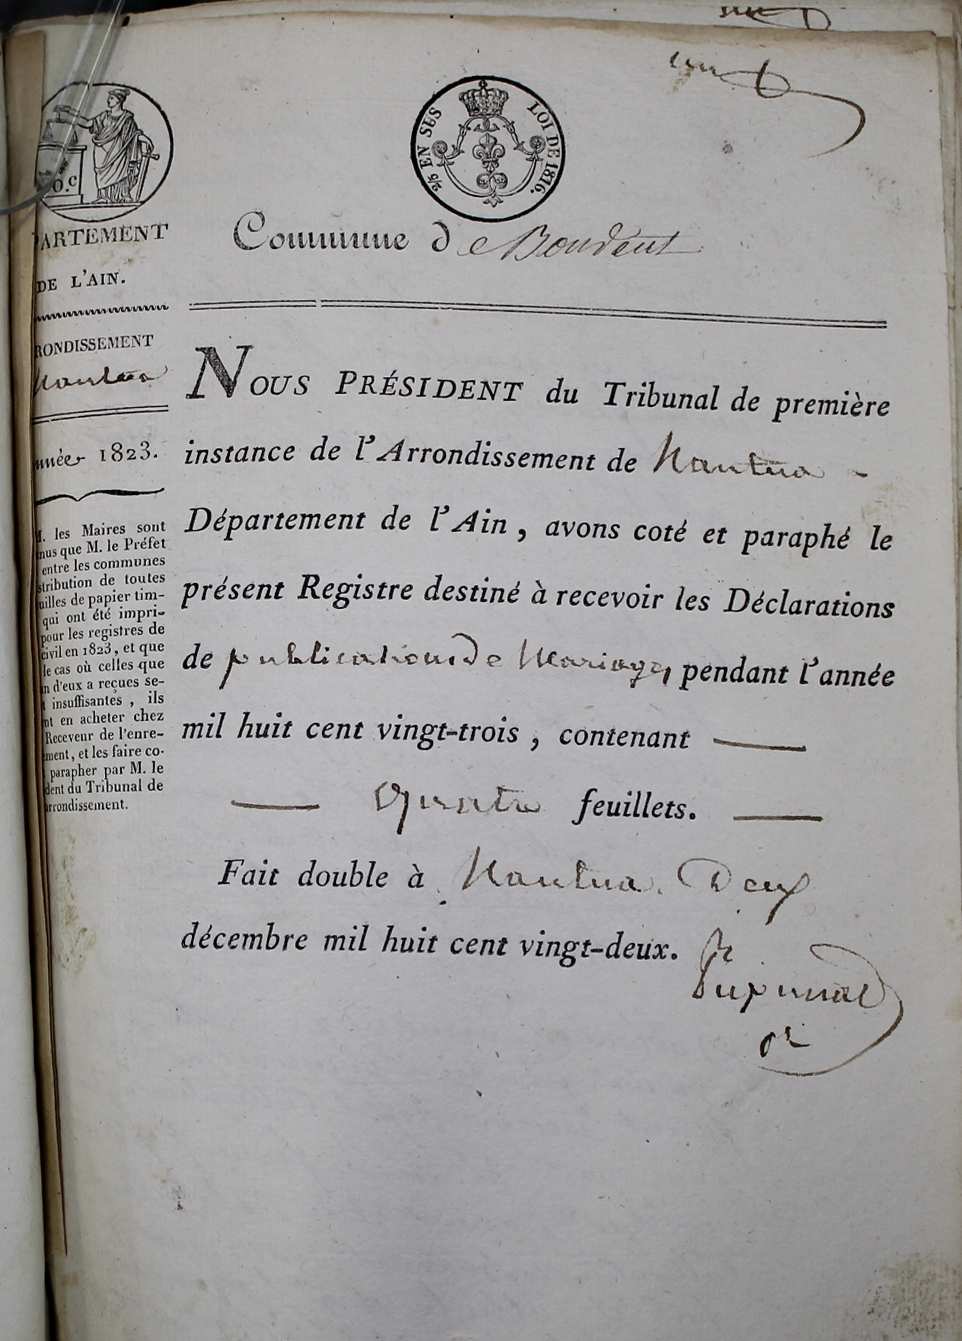 un
2/5 EN SUS LOI DE 1816.
O.C
PARTEMENT
DE L'AIN.
RONDISSEMENT
Nantua
nnée 1823.
M. les Maires sont
nus que M. le Préfet
entre les communes
stribution de toutes
uilles de papier tim-
qui ont été impri-
pour les registres de
civil en 1823, et que
le cas où celles que
n d'eux a reçues se-
insuffisantes, ils
nt en acheter chez
Receveur de l'enre-
ment, et les faire co-
parapher par M. le
dent du Tribunal de
rrondissement.
Commune de Boudent
NOUS PRÉSIDENT du Tribunal de première
instance de l'Arrondissement de Nantua
Département de l'Ain, avons coté et paraphé le
présent Registre destiné à recevoir les Déclarations
de publications de Mariages, pendant l'année
mil huit cent vingt-trois, contenant
quatre feuillets.
Fait double à Nantua Deux
décembre mil huit cent vingt-deux.